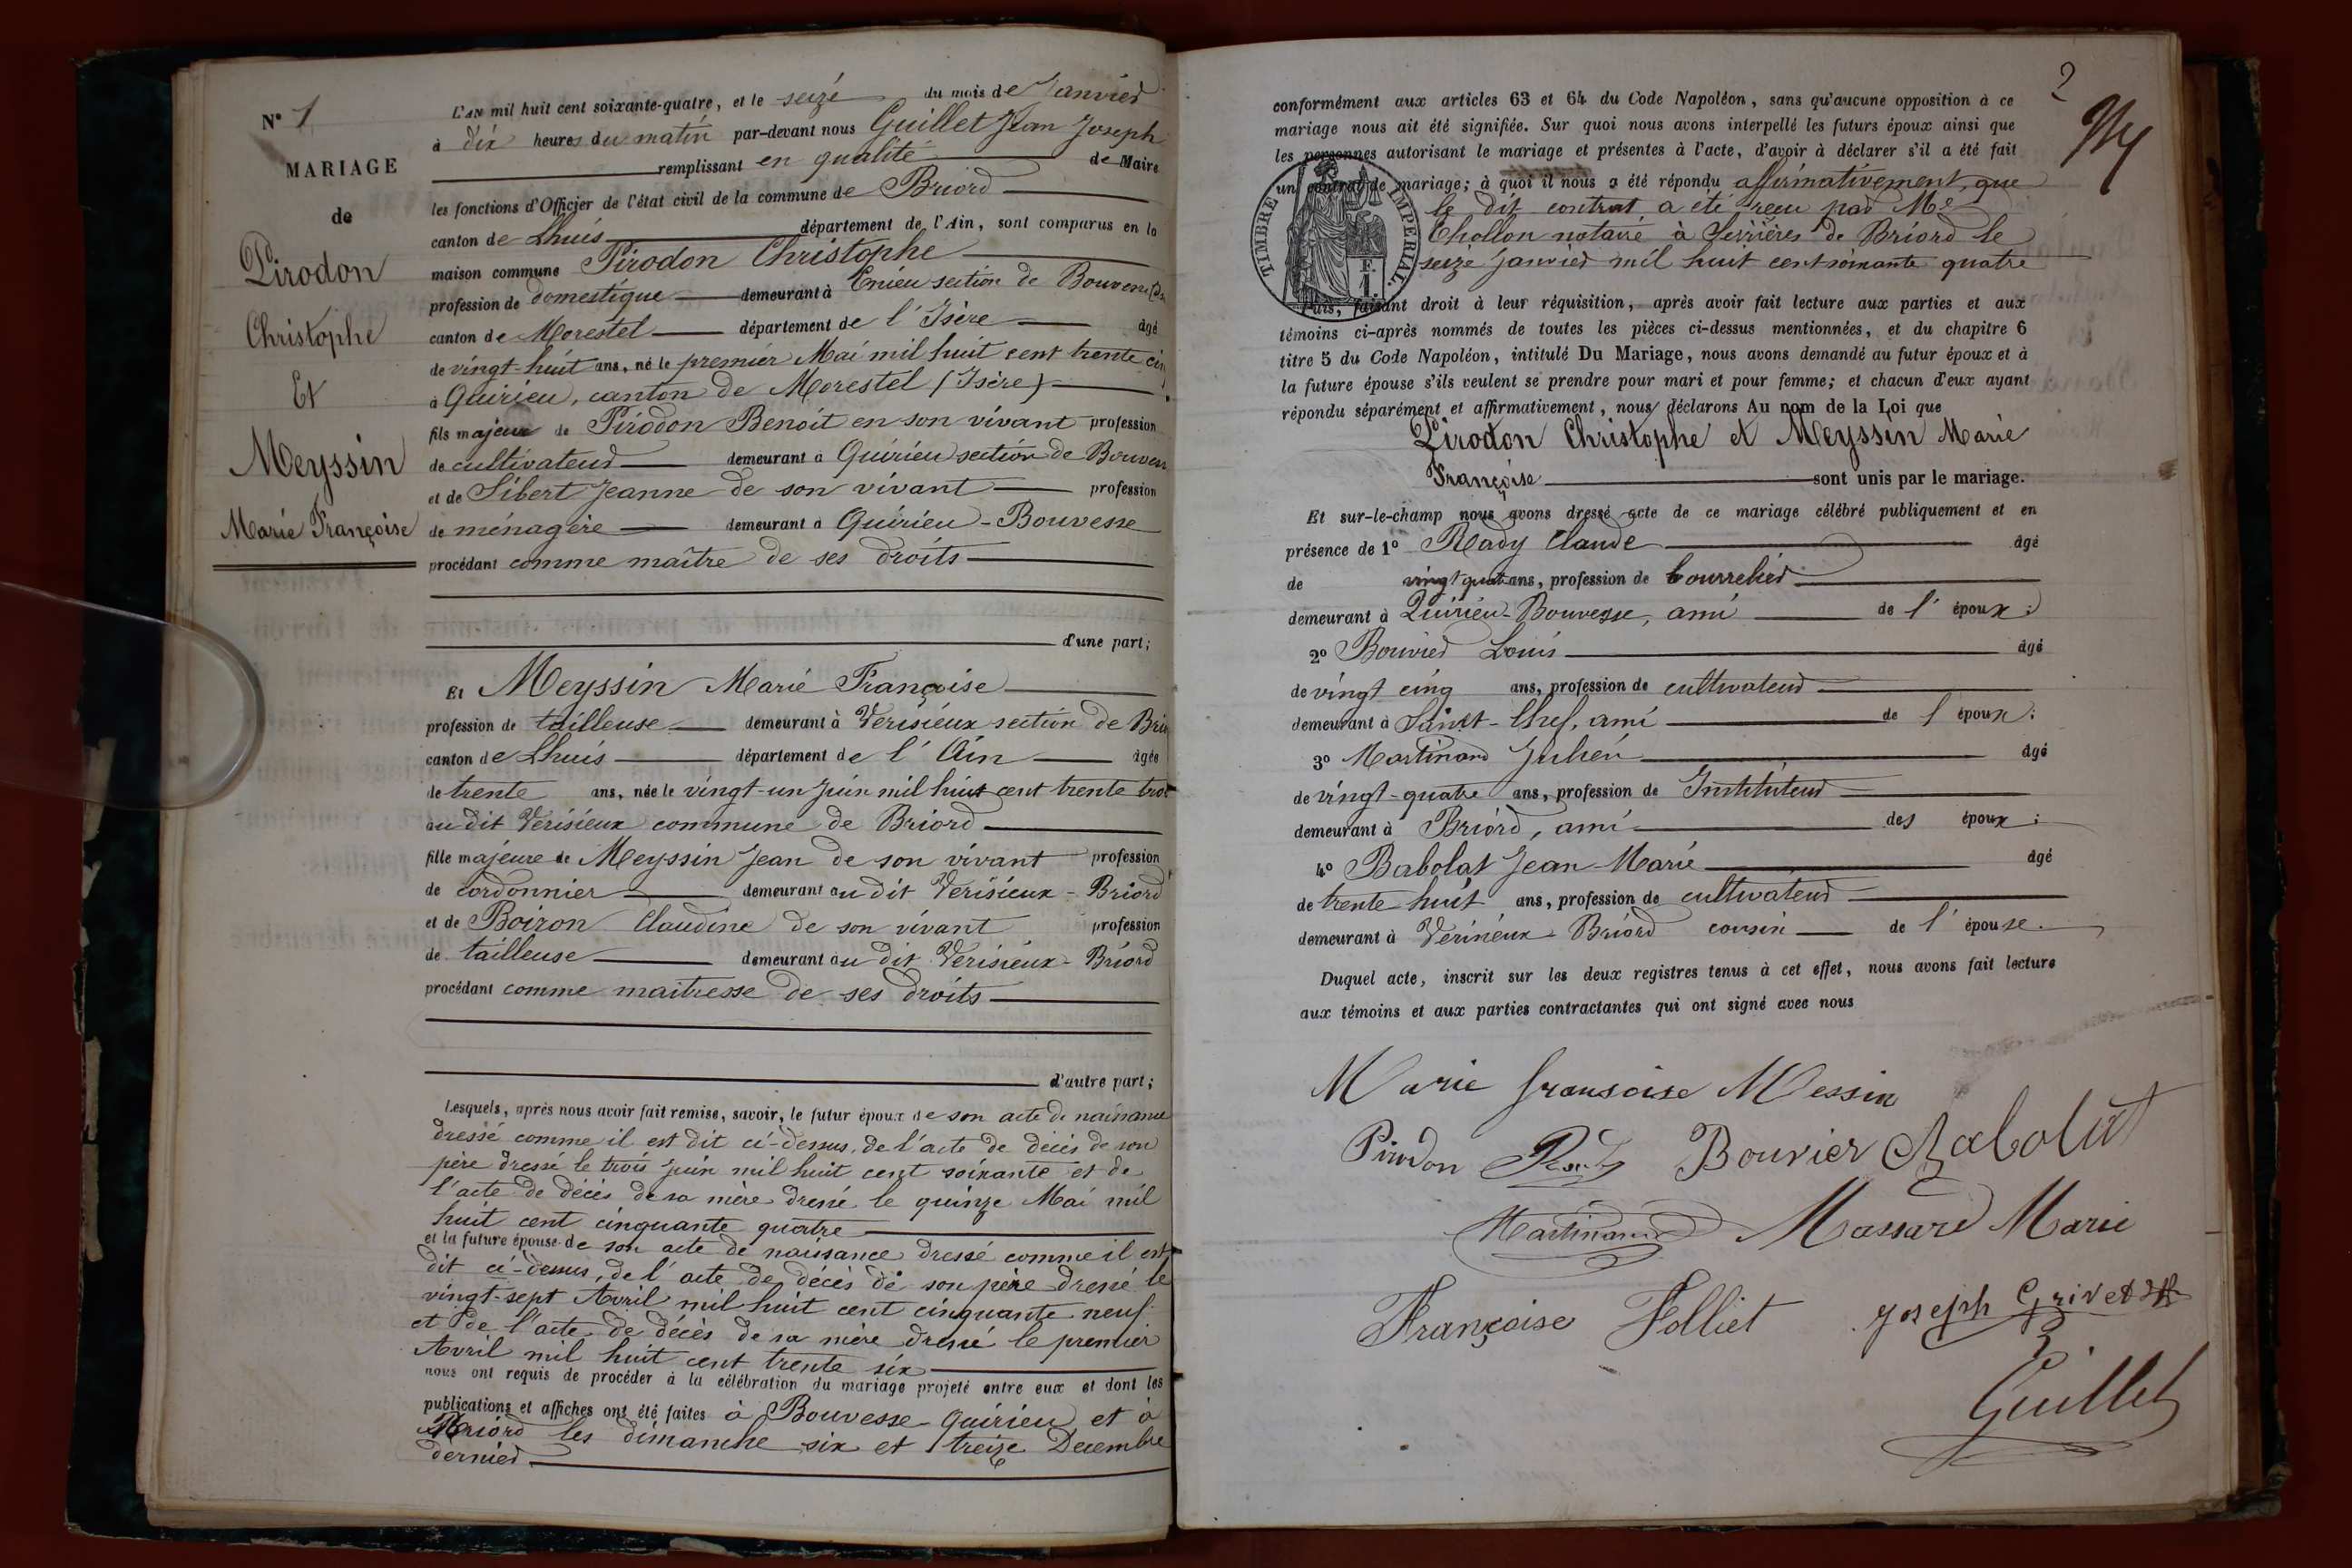 N° 1
MARIAGE
de
Pirodon
Christophe
Et
Meyssin
Marie Françoise
L'AN mil huit cent soixante-quatre, et le seize du mois de Janvier
à dix heures du matin par-devant nous Guillet Jean Joseph
remplissant en qualité de Maire
les fonctions d'Officier de l'état civil de la commune de Briord
canton de Lhuis département de l'Ain, sont comparus en la
maison commune Pirodon Christophe
profession de domestique demeurant à Enieu section de
canton de Morestel département de l'Isère âgé
de vingt-huit ans, né le premier Mai mil huit cent trente cin
à Quirieu, canton de Morestel (Isère)
fils majeur de Pirodon Benoit en son vivant profession
de cultivateur demeurant à Quirieu section de Bouvess
et de Sibert Jeanne de son vivant profession
de ménagère demeurant à Quirieu-Bouvesse
procédant comme maître de ses droits
d'une part;
Et Meyssin Marie Françoise
profession de tailleuse demeurant à Verisieux section de Brio
canton de Lhuis département de l'Ain âgée
de trente ans, née le vingt-un juin mil huit cent trente troi
au dit Verisieux commune de Briord
fille majeure de Meyssin Jean de son vivant profession
de cordonnier demeurant au dit Verisieux-Briord
et de Boiron Claudine de son vivant profession
de tailleuse demeurant au dit Verisieux-Briord
procédant comme maitresse de ses droits
d'autre part;
Lesquels, après nous avoir fait remise, savoir, le futur époux de son acte de naissance
dressé comme il est dit ci-dessus, de l'acte de décès de son
père dressé le trois juin mil huit cent soixante et de
l'acte de décès de sa mère dressé le quinze Mai mil
huit cent cinquante quatre
et la future épouse de son acte de naissance dressé comme il est
dit ci-dessus, de l'acte de décès de son père dressé le
vingt-sept Avril mil huit cent cinquante neuf
et de l'acte de décès de sa mère dressé le premier
Avril mil huit cent trente six
nous ont requis de procéder à la célébration du mariage projeté entre eux et dont les
publications et affiches ont été faites à Bouvesse-Quirieu et à
Briord les dimanche six et treize Decembre
dernier
2
conformément aux articles 63 et 64 du Code Napoléon, sans qu'aucune opposition à ce
mariage nous ait été signifiée. Sur quoi nous avons interpellé les futurs époux ainsi que
les personnes autorisant le mariage et présentes à l'acte, d'avoir à déclarer s'il a été fait
un contrat de mariage; à quoi il nous a été répondu affirmativement, que
le dit contrat a été reçu par Me
Chollon notaire à Serrières de Briord le
seize janvier mil huit cent soixante quatre
TIMBRE IMPERIAL
F.
1.
Puis, faisant droit à leur réquisition, après avoir fait lecture aux parties et aux
témoins ci-après nommés de toutes les pièces ci-dessus mentionnées, et du chapitre 6
titre 5 du Code Napoléon, intitulé Du Mariage, nous avons demandé au futur époux et à
la future épouse s'ils veulent se prendre pour mari et pour femme; et chacun d'eux ayant
répondu séparément et affirmativement, nous déclarons Au nom de la Loi que
Pirodon Christophe et Meyssin Marie
Françoise sont unis par le mariage.
Et sur-le-champ nous avons dressé acte de ce mariage célébré publiquement et en
présence de 1° Rady Claude âgé
de vingt quat ans, profession de bourrelier
demeurant à Quirieu-Bouvesse, ami de l'époux;
2° Bouvier Louis âgé
de vingt cinq ans, profession de cultivateur
demeurant à Saint-Chef, ami de l'époux;
3° Martinand Julien âgé
de vingt-quatre ans, profession de Instituteur
demeurant à Briord, ami des époux;
4° Babolat Jean-Marie âgé
de trente huit ans, profession de cultivateur
demeurant à Verisieux-Briord cousin de l'épouse.
Duquel acte, inscrit sur les deux registres tenus à cet effet, nous avons fait lecture
aux témoins et aux parties contractantes qui ont signé avec nous
Marie fransoise Messin
Pirodon Rady Bouvier Babolat
Martinand Massard Marie
Françoise Folliet Joseph Grivet
Guillet